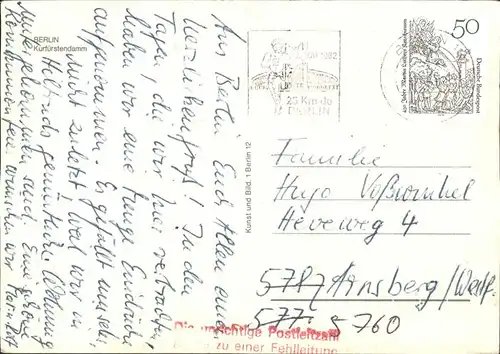 BERLIN
Kurfürstendamm
Aus Berlin Euch Allen einen
herzlichen Gruß! In den
Tagen, die wir hier verbrachten,
haben wir eine Menge Eindrücke
aufgenommen. Es gefällt uns sehr,
nicht zuletzt, weil wir in
Hiltruds gemütlicher Wohnung
untergekommen sind. Eine gute
wünschen wir
Kunst und Bild, 1 Berlin 12
1982
25 Km-de
BERLIN
50
Deutsche Bundespost
Familie
Hugo Voßwinkel
Heveweg 4
5787 Arnsberg/Westf.
577
5760
Die unrichtige Postleitzahl
zu einer Fehlleitung